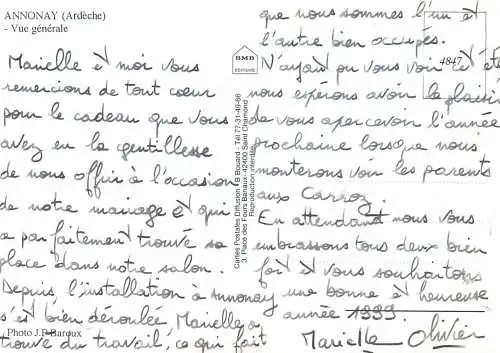 ANNONAY (Ardèche)
- Vue générale
Marielle et moi vous
remercions de tout coeur
pour le cadeau que vous
avez eu la gentillesse
de nous offrir à l'occasion
de notre mariage et qui
a parfaitement trouvé sa
place dans notre salon.
Depuis, l'installation à Annonay
s'est bien déroulée, Marielle a
trouvé du travail, ce qui fait
Photo J.P Baroux
BMB
EDITIONS
Cartes Postales Diffusion - B Bissard - Tél 77-31-49-86
3, Place des Fours Banaux - 42400 Saint Chamond
Reproduction interdite
que nous sommes l'un et
l'autre bien occupés.
4847
N'ayant pu vous voir cet été
nous espérons avoir le plaisir
de vous apercevoir l'année
prochaine lorsque nous
monterons voir les parents
aux Carroz.
En attendant nous vous
embrassons tous deux bien
fort et vous souhaitons
une bonne et heureuse
année 1999
Marielle Olivier